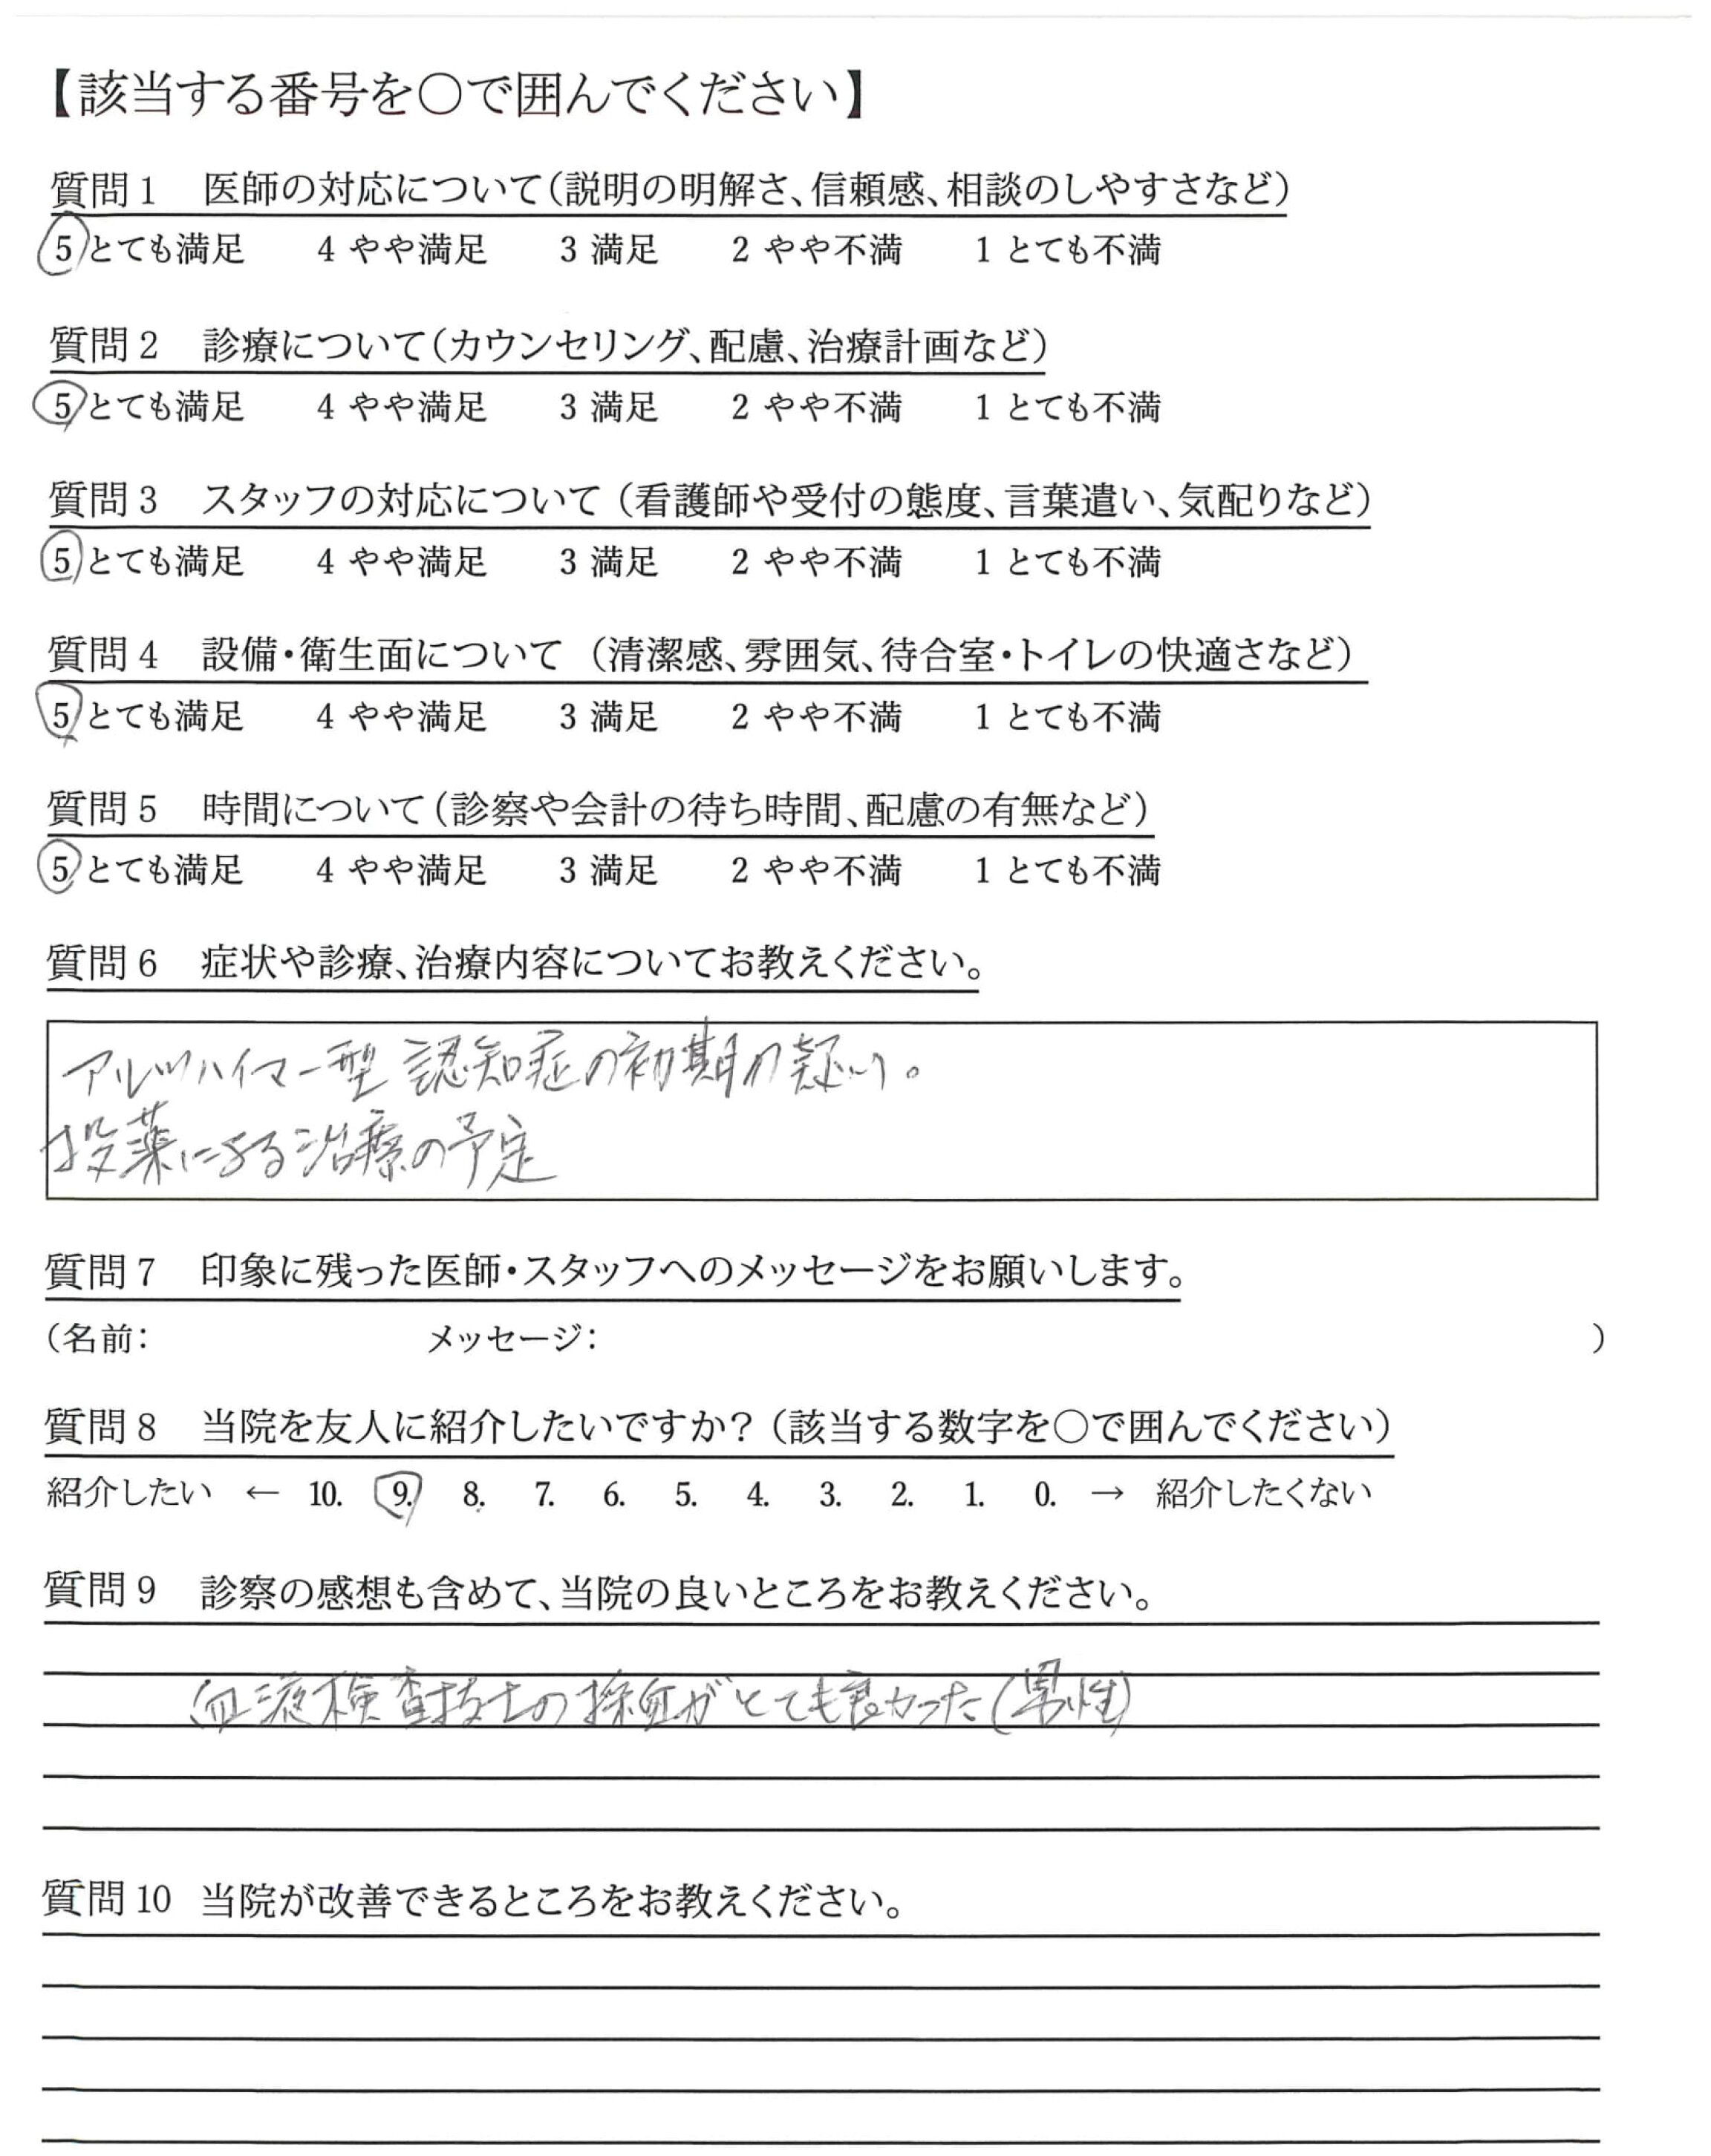 【該当する番号を○で囲んでください】
質問1 医師の対応について（説明の明解さ、信頼感、相談のしやすさなど）
5 とても満足 4 やや満足 3 満足 2 やや不満 1 とても不満
質問2 診療について（カウンセリング、配慮、治療計画など）
5 とても満足 4 やや満足 3 満足 2 やや不満 1 とても不満
質問3 スタッフの対応について（看護師や受付の態度、言葉遣い、気配りなど）
5 とても満足 4 やや満足 3 満足 2 やや不満 1 とても不満
質問4 設備・衛生面について（清潔感、雰囲気、待合室・トイレの快適さなど）
5 とても満足 4 やや満足 3 満足 2 やや不満 1 とても不満
質問5 時間について（診察や会計の待ち時間、配慮の有無など）
5 とても満足 4 やや満足 3 満足 2 やや不満 1 とても不満
質問6 症状や診療、治療内容についてお教えください。
アルツハイマー型認知症の初期の疑い。
投薬による治療の予定
質問7 印象に残った医師・スタッフへのメッセージをお願いします。
（名前： メッセージ： ）
質問8 当院を友人に紹介したいですか？（該当する数字を○で囲んでください）
紹介したい ← 10. 9. 8. 7. 6. 5. 4. 3. 2. 1. 0. → 紹介したくない
質問9 診察の感想も含めて、当院の良いところをお教えください。
血液検査技士の採血がとても良かった（男性）
質問10 当院が改善できるところをお教えください。